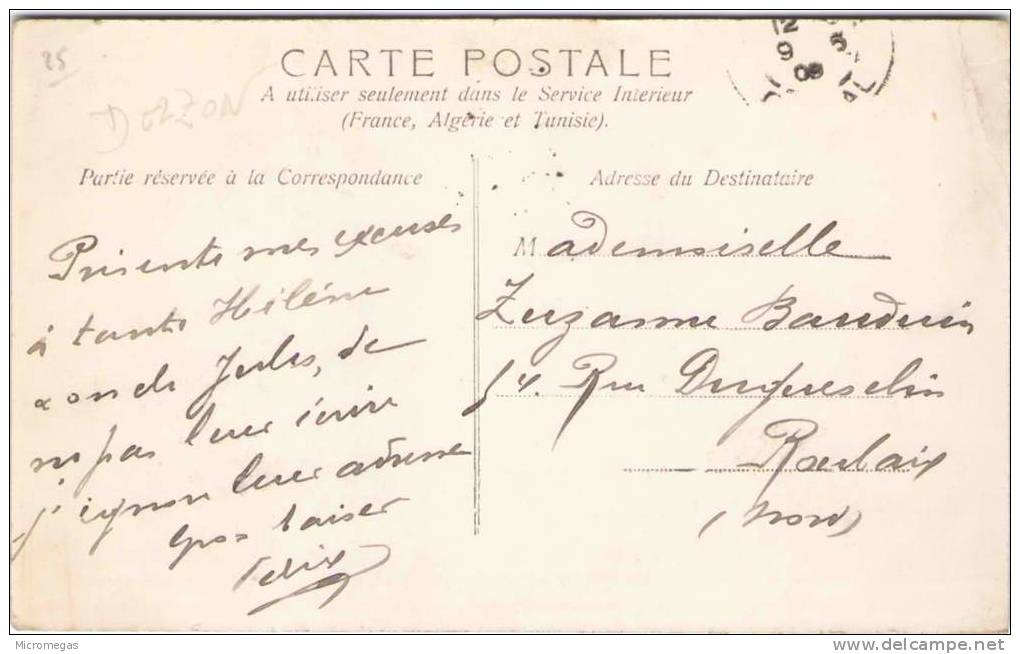 25
CARTE POSTALE
A utiliser seulement dans le Service Interieur
(France, Algérie et Tunisie).
Partie réservée à la Correspondance
Adresse du Destinataire
Présente mes excuses
à tante Hélène
oncle Jules, de
ne pas leur écrire
j'ignore leur adresse
Gros baiser
Félix
Mademoiselle
Zuzanne Bauduin
54. Rue Duguesclin
Roubaix
(Nord)
Micromegas
delcampe.net